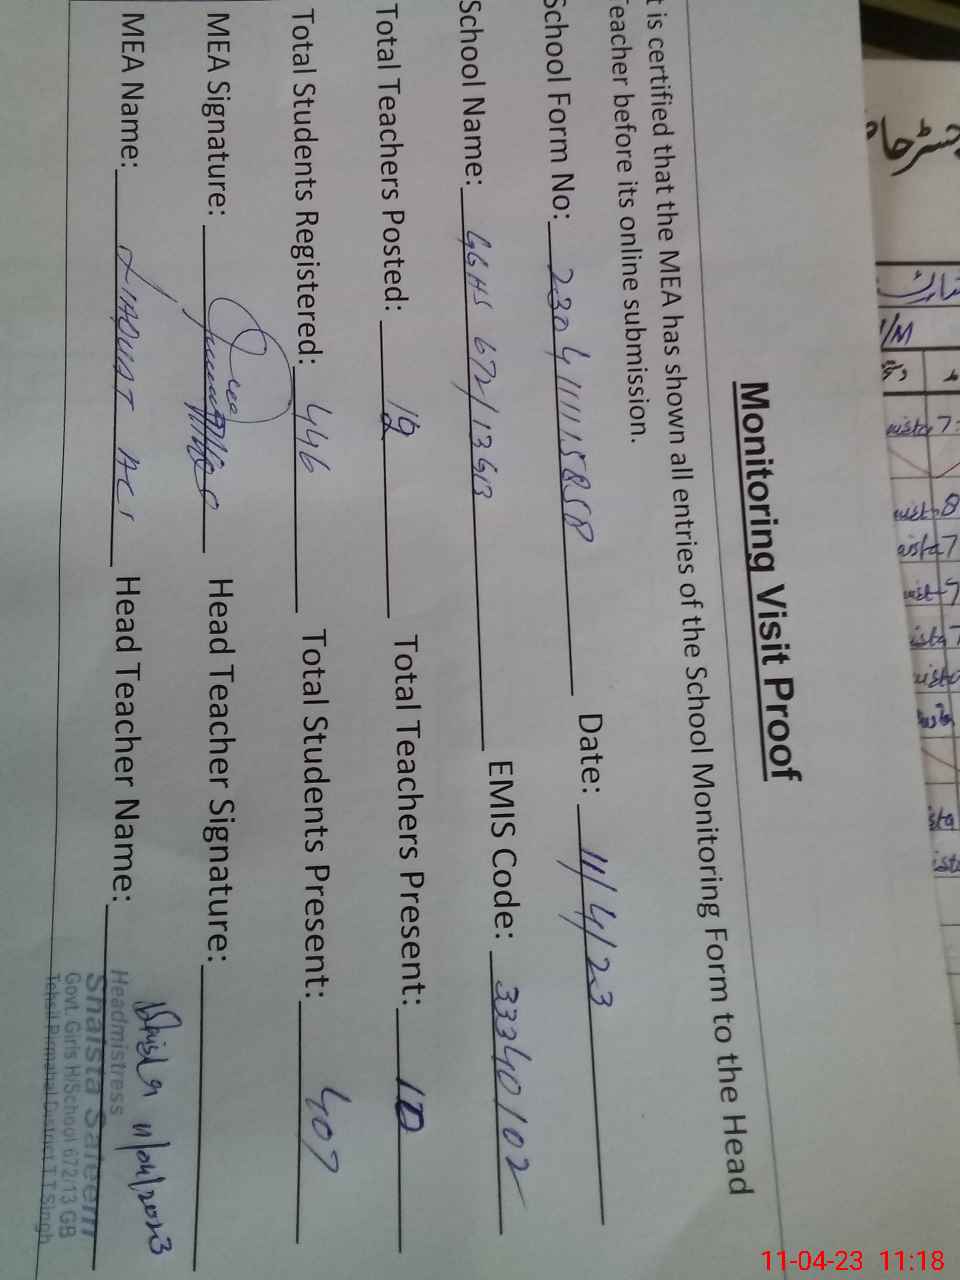 Monitoring Visit Proof
t is certified that the MEA has shown all entries of the School Monitoring Form to the Head
Teacher before its online submission.
School Form No: 23041111 5858 Date: 11/4/23
School Name: GGHS 672/13GB EMIS Code: 33340102
Total Teachers Posted: Total Teachers Present: 10
Total Students Registered: 446 Total Students Present: 407
MEA Signature: Head Teacher Signature:
MEA Name: LIAQUAT ALI Head Teacher Name:
11/04/2023
Headmistress
Shaista Saleem
Govt. Girls H/School 672/13 GB
Tehsil Pirmahal District T.T.Singh
11-04-23 11:18